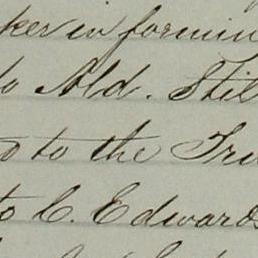 ker in formin
to Ald. Stil
to the Tru
to C. Edwards